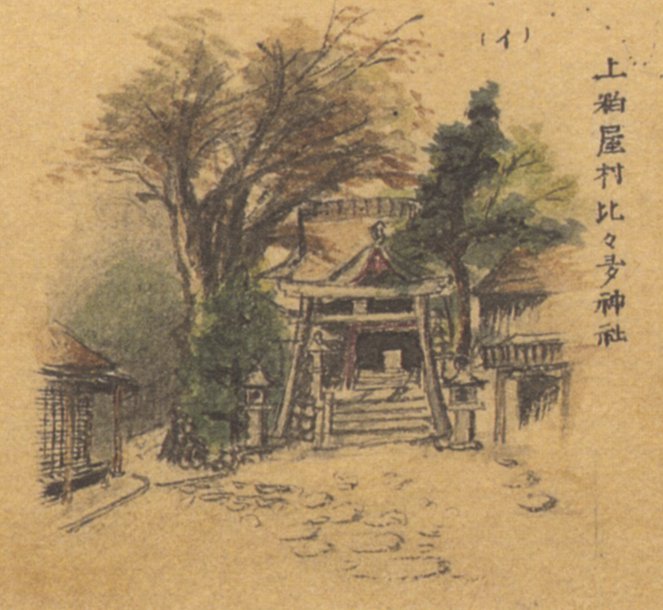 (イ)
上粕屋村比々多神社